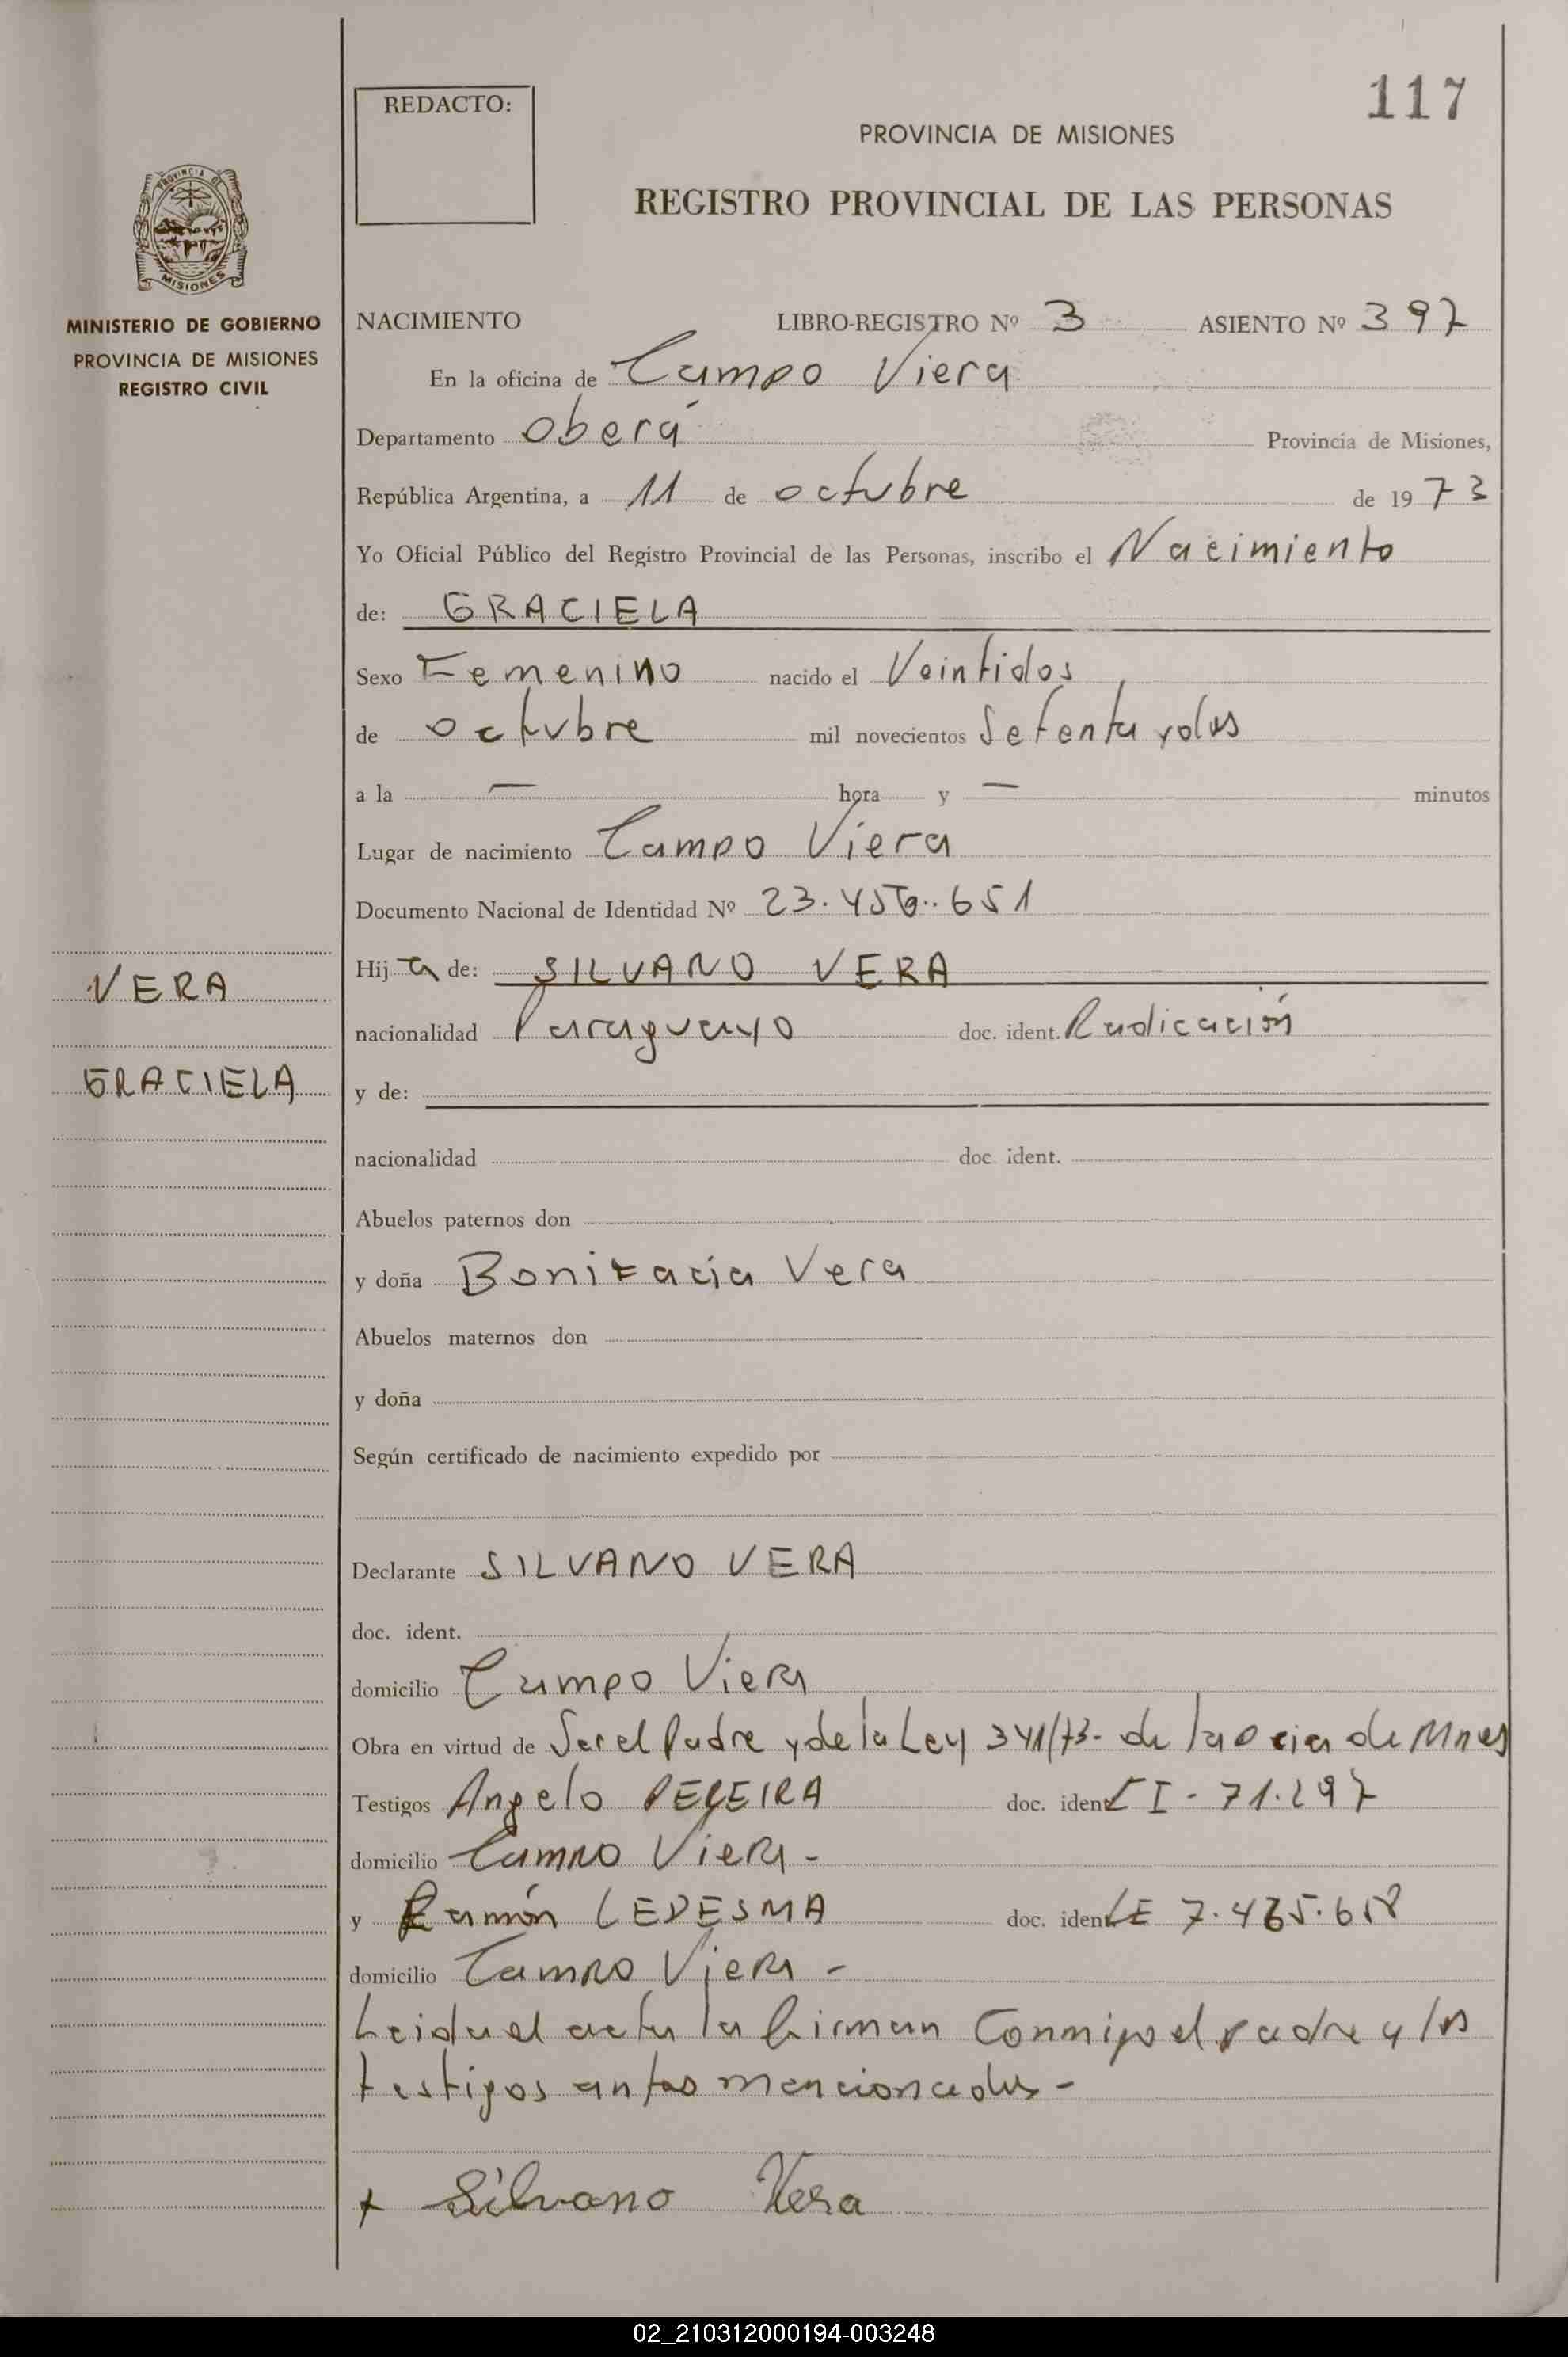 117
REDACTO:
PROVINCIA DE MISIONES
REGISTRO PROVINCIAL DE LAS PERSONAS
PROVINCIA DE
MISIONES
MINISTERIO DE GOBIERNO
PROVINCIA DE MISIONES
REGISTRO CIVIL
NACIMIENTO LIBRO-REGISTRO Nº 3 ASIENTO Nº 397
En la oficina de Campo Viera
Departamento Oberá Provincia de Misiones,
República Argentina, a 11 de octubre de 1973
Yo Oficial Público del Registro Provincial de las Personas, inscribo el Nacimiento
de: GRACIELA
Sexo Femenino nacido el Veintidos
de octubre mil novecientos Setenta y dos
a la — hora y — minutos
Lugar de nacimiento Campo Viera
Documento Nacional de Identidad Nº 23. 651
VERA
GRACIELA
Hija de: SILVANO VERA
nacionalidad Paraguayo doc. ident. Radicación
y de:
nacionalidad doc. ident.
Abuelos paternos don
y doña Bonifacia Vera
Abuelos maternos don
y doña
Según certificado de nacimiento expedido por
Declarante SILVANO VERA
doc. ident.
domicilio Campo Viera
Obra en virtud de Ser el Padre y de la Ley 341/73- de la de Mnes
Testigos Angelo PEREIRA doc. ident CI - 71.297
domicilio Campo Viera -
y Ramón LEDESMA doc. ident LE
domicilio Campo Viera -
Leida el acta la firman Conmigo el padre y los
testigos antes mencionados -
+ Silvano Vera
02_210312000194-003248